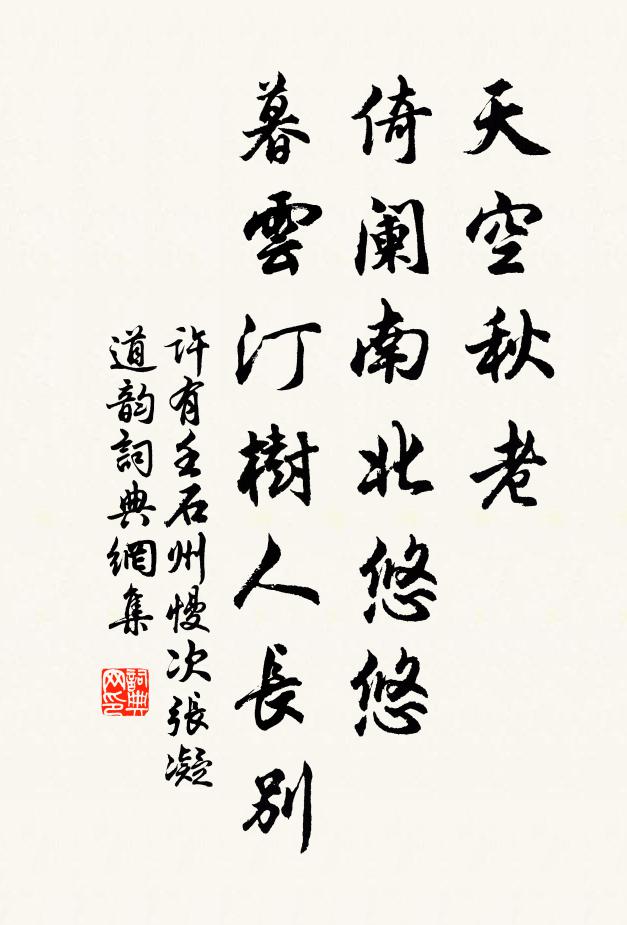 天空秋老
倚阑南北悠悠
暮雲汀樹人長別
許有壬石州慢次張凝
道韵詞典網集
詞典网印